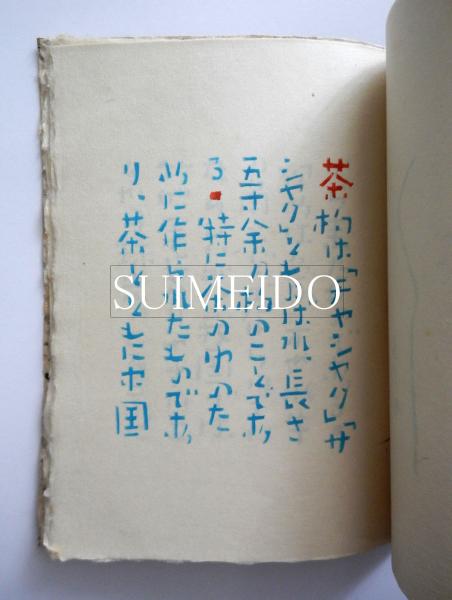 茶杓は「チャシャク」「サ
シャク」ともいはれ、長さ
五寸余の物のことであ
る。特に茶のゆのた
めに作られたものであ
り、茶とともに中国
SUIMEIDO